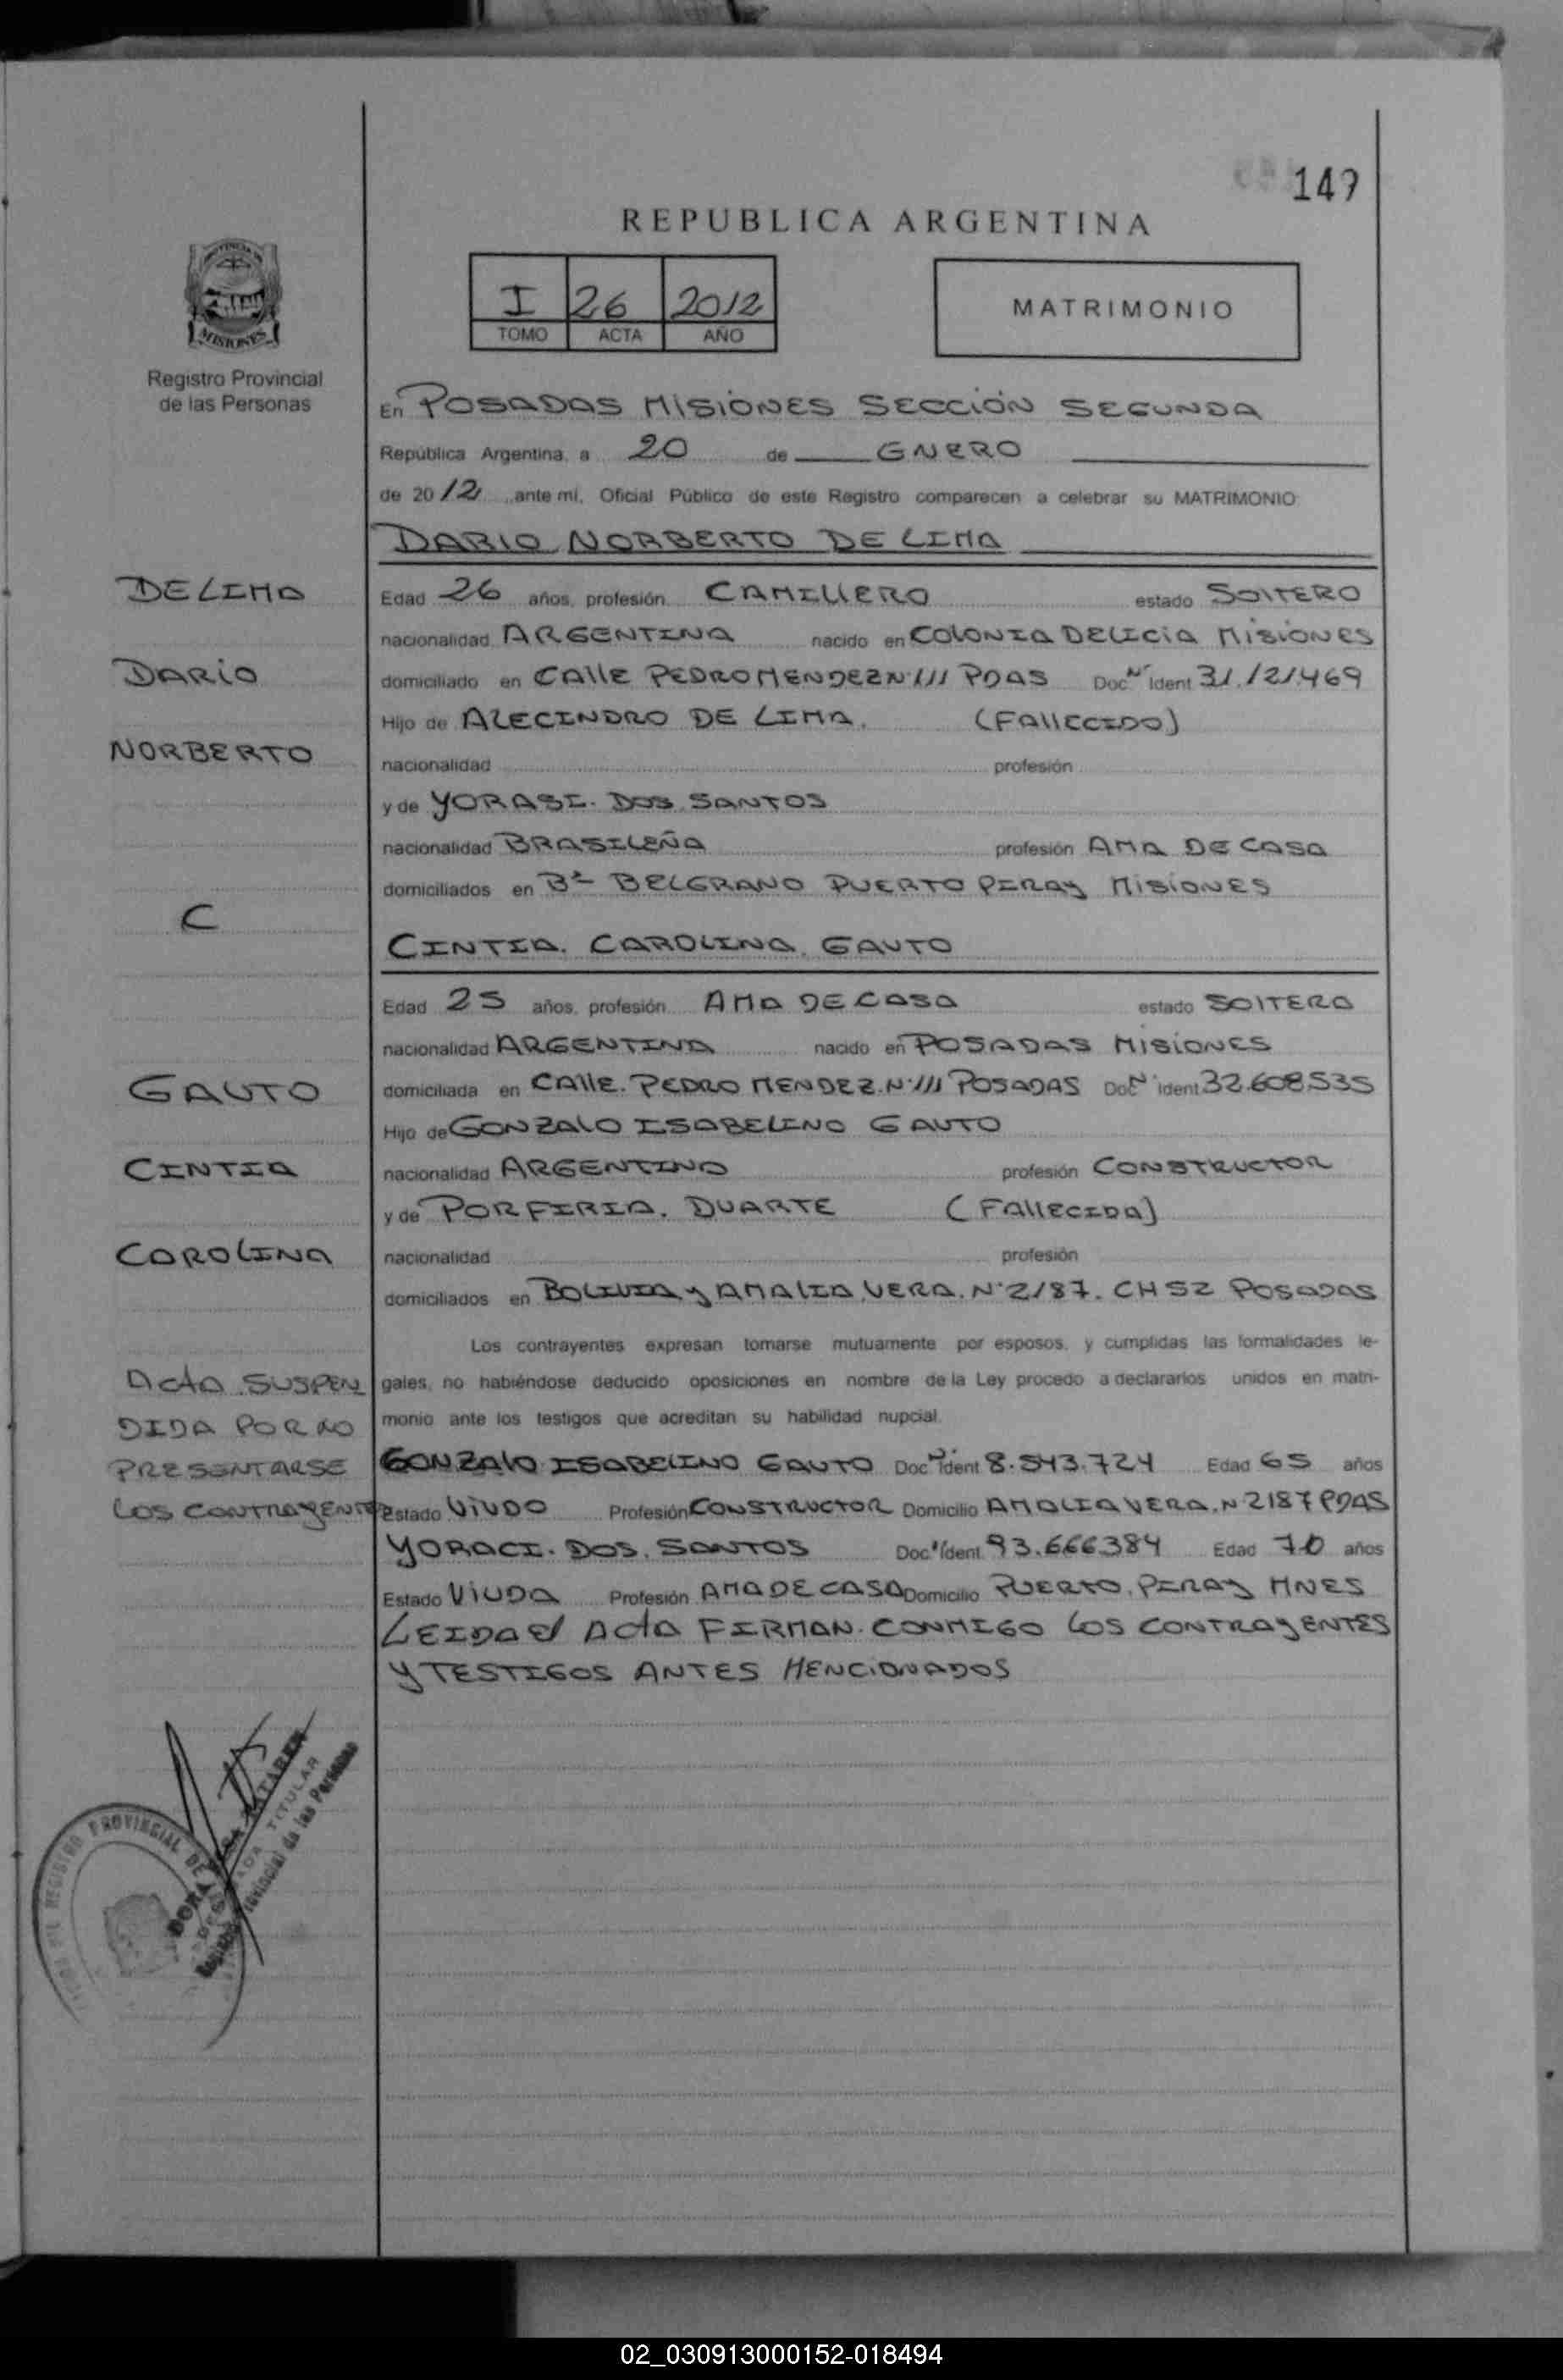 149
REPUBLICA ARGENTINA
PROVINCIA DE
MISIONES
Registro Provincial
de las Personas
I 26 2012
TOMO ACTA AÑO
MATRIMONIO
En POSADAS MISIONES SECCIÓN SEGUNDA
República Argentina, a 20 de ENERO
de 2012 ante mí, Oficial Público de este Registro comparecen a celebrar su MATRIMONIO:
DARIO NORBERTO DE LIMA
DE LIMA
DARÍO
NORBERTO
C
GAUTO
CINTIA
CAROLINA
Edad 26 años, profesión CAMILLERO estado SOLTERO
nacionalidad ARGENTINA nacido en COLONIA DELICIA MISIONES
domiciliado en CALLE PEDRO MENDEZ N·111 PDAS Doc Nº Ident 31.121.469
Hijo de ALECINDRO DE LIMA. (FALLECIDO)
nacionalidad profesión
y de YORASI. DOS SANTOS
nacionalidad BRASILEÑA profesión AMA DE CASA
domiciliados en Bº BELGRANO PUERTO PIRAY MISIONES
CINTIA. CAROLINA. GAUTO
Edad 25 años, profesión AMA DE CASA estado SOLTERA
nacionalidad ARGENTINA nacido en POSADAS MISIONES
domiciliada en CALLE. PEDRO MENDEZ. N·111 POSADAS Doc Nº ident 32.608.535
Hijo de GONZALO ISABELINO GAUTO
nacionalidad ARGENTINO profesión CONSTRUCTOR
y de PORFIRIA. DUARTE (FALLECIDA)
nacionalidad profesión
domiciliados en BOLIVIA y AMALIA VERA. N·2187. CH 52 POSADAS
Los contrayentes expresan tomarse mutuamente por esposos, y cumplidas las formalidades le-
gales, no habiéndose deducido oposiciones en nombre de la Ley procedo a declararlos unidos en matri-
monio ante los testigos que acreditan su habilidad nupcial.
ACTA SUSPEN
DIDA POR NO
PRESENTARSE
LOS CONTRAYENTES
GONZALO ISABELINO GAUTO Doc Nº Ident 8.543.724 Edad 65 años
Estado VIUDO Profesión CONSTRUCTOR Domicilio AMALIA VERA. N 2187 PDAS
YORACI. DOS. SANTOS Doc Nº Ident 93.666384 Edad 70 años
Estado VIUDA Profesión AMA DE CASA Domicilio PUERTO. PIRAY MNES
LEIDA el ACTA FIRMAN. CONMIGO LOS CONTRAYENTES
Y TESTIGOS ANTES MENCIONADOS
REGISTRO PROVINCIAL DE
DORA
TITULAR
Provincial de las Personas
02_030913000152-018494